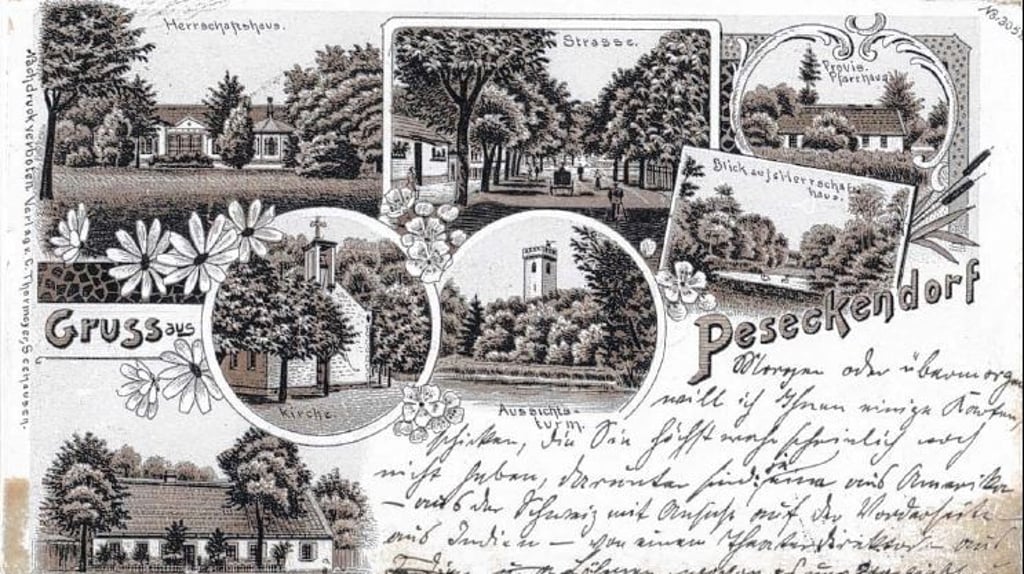 No. 305
Herrschaftshaus.
Strasse.
Provis.
Pfarrhaus
Blick aufs Herrscha
haus.
Nachdruck verboten. Verlag v. C. Thormeyer, Seehausen.
Gruss aus
Peseckendorf
Kirche.
Aussichts-
turm.
Morgen oder übermorgen
will ich Ihnen einige Karten
schicken, die Sie höchst wahrscheinlich noch
nicht haben, darunter sind eine aus Amerika
– aus der Schweiz mit Ansicht auf der Vorderseite
aus Indien – von einem Theaterdirektor aus